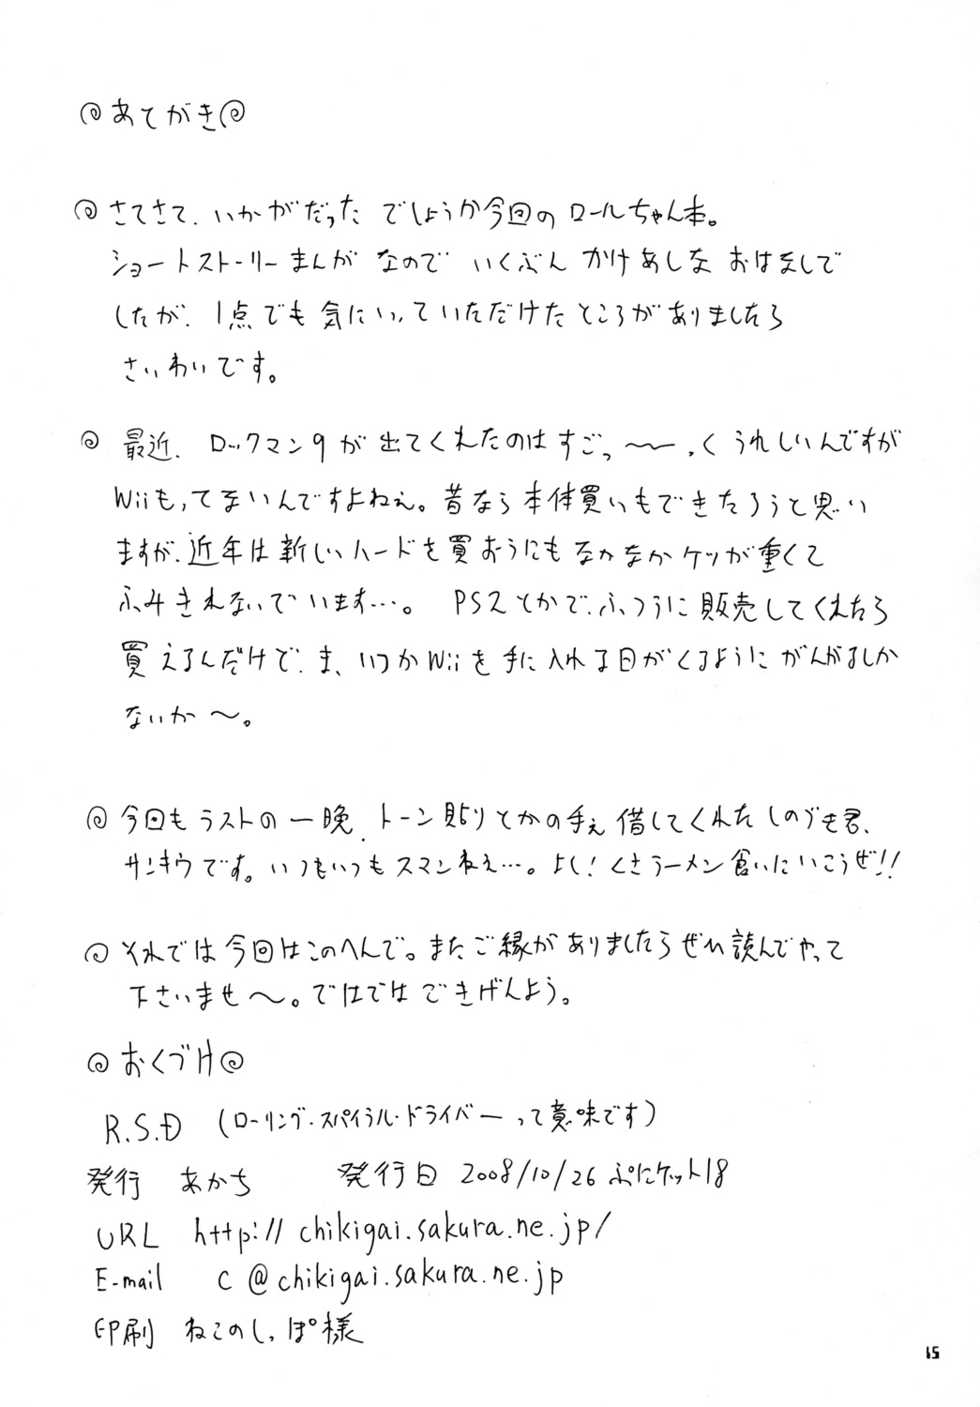 ◎あとがき◎
◎さてさて、いかがだったでしょうか今回のロールちゃん本。
ショートストーリーまんがなので いくぶん かけあしな おはなしで
したが、1点でも気にいっていただけたところがありましたら
さいわいです。
◎最近、ロックマン9が出てくれたのはすごっ〜〜っくうれしいんですが
Wiiもってないんですよねぇ。昔なら本体買いもできたろうと思い
ますが、近年は新しいハードを買おうにもなかなかケツが重くて
ふみきれないでいます…。 PS2とかで、ふつうに販売してくれたら
買えるんだけど、ま、いつかWiiを手に入れる日がくるようにがんばるしか
ないか〜。
◎今回もラストの一晩、トーン貼りとかの手ぇ借してくれたしのぶも君、
サンキウです。いつもいつもスマンねぇ…。よし!くさラーメン食いにいこうぜ!!
◎それでは今回はこのへんで。またご縁がありましたらぜひ読んでやって
下さいませ〜。ではではごきげんよう。
◎おくづけ◎
R.S.D (ローリング・スパイラル・ドライバーって意味です)
発行 あかち 発行日 2008/10/26 ぷにケット18
URL http://chikigai.sakura.ne.jp/
E-mail c@chikigai.sakura.ne.jp
印刷 ねこのしっぽ様
15